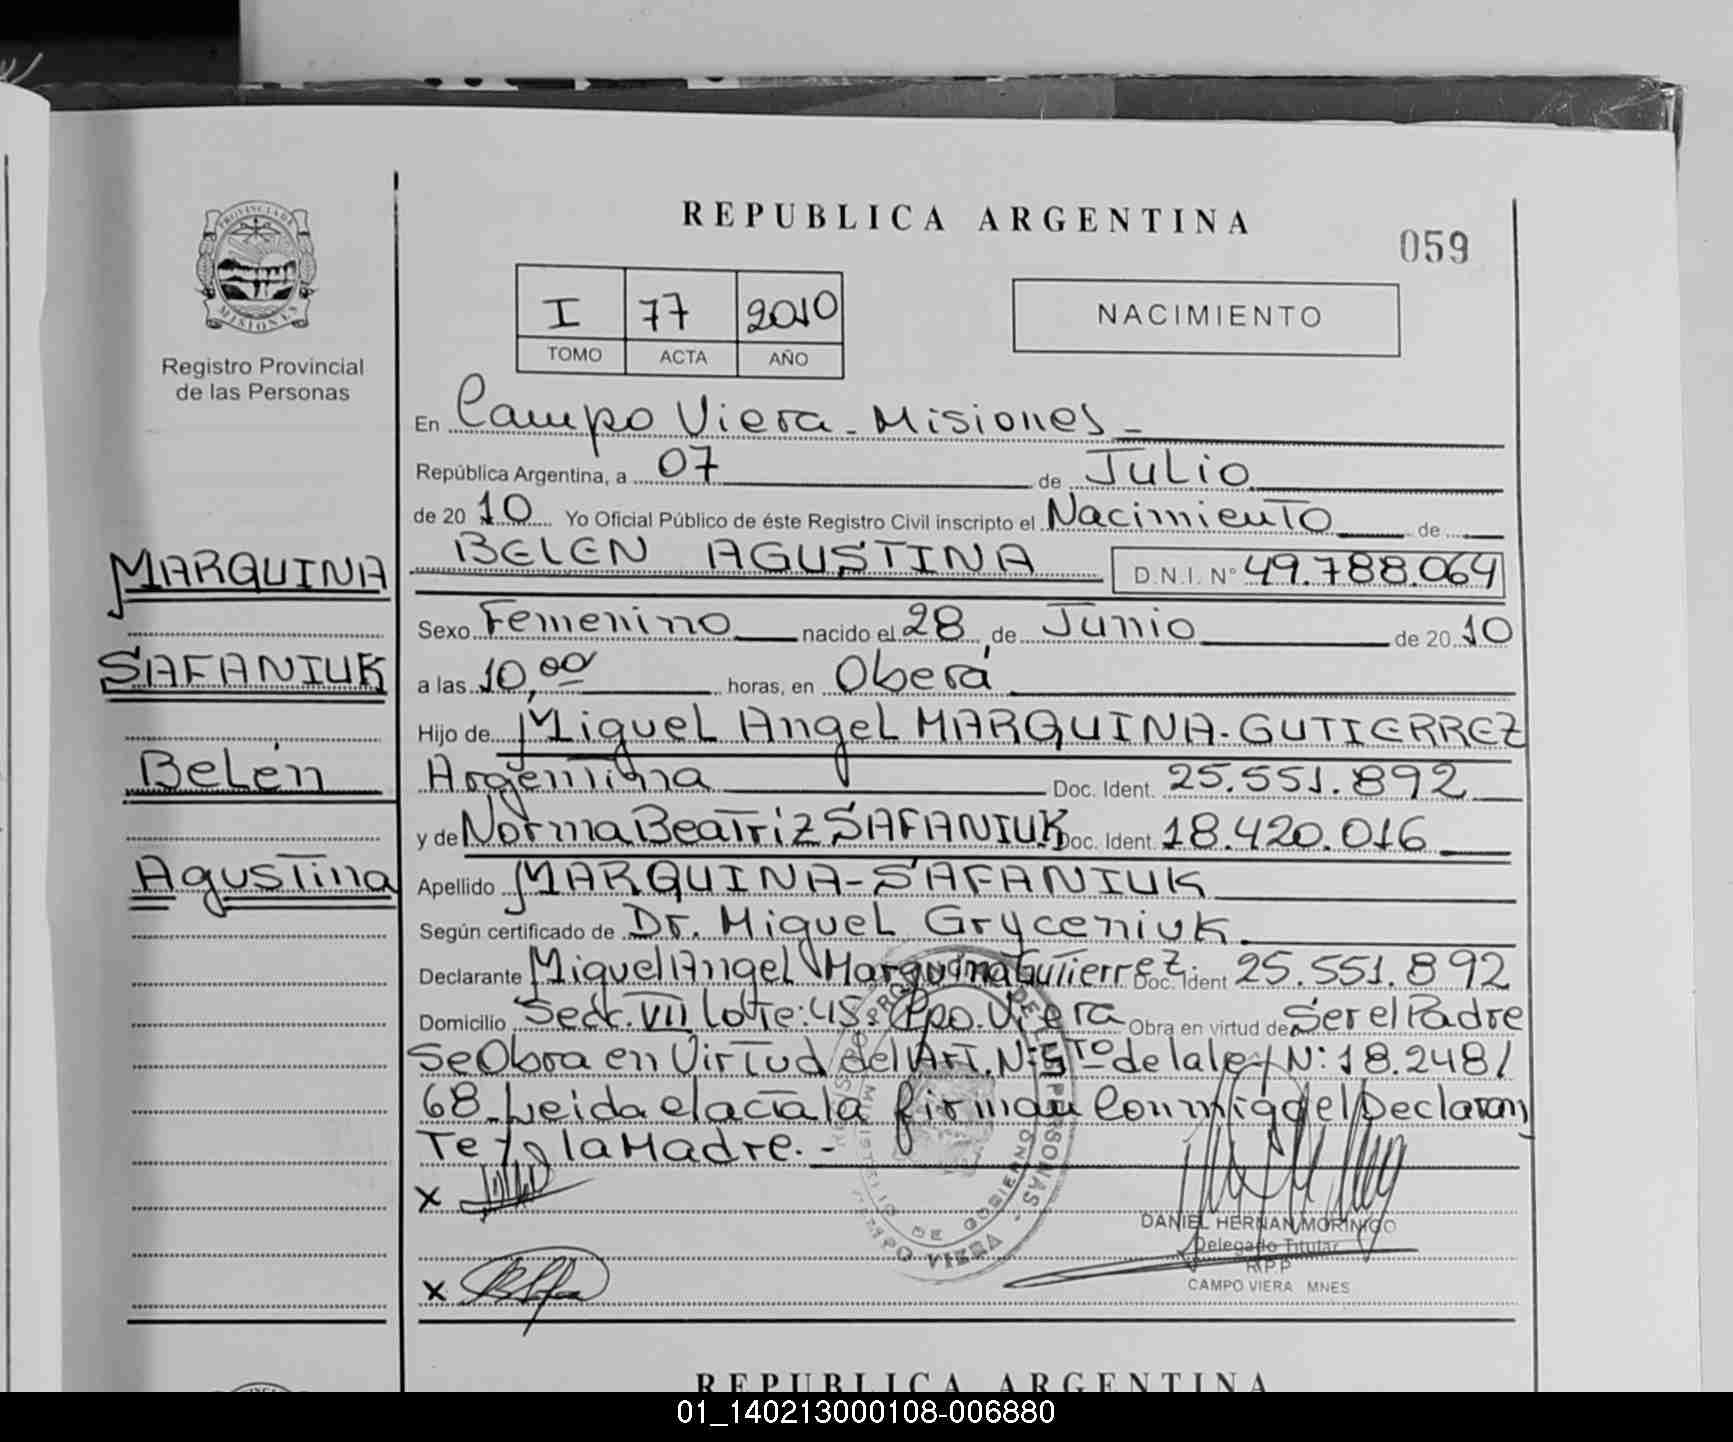 REPUBLICA ARGENTINA
059
PROVINCIA DE
MISIONES
Registro Provincial
de las Personas
I 77 2010
TOMO ACTA AÑO
NACIMIENTO
En Campo Viera - Misiones -
República Argentina, a 07 de Julio
de 20 10 Yo Oficial Público de éste Registro Civil inscripto el Nacimiento de
BELEN AGUSTINA D.N.I. N° 49.788.064
MARQUINA
SAFANIUK
Belén
Agustina
Sexo Femenino nacido el 28 de Junio de 20 10
a las 10,00 horas, en Oberá
Hijo de Miguel Angel MARQUINA-GUTIERREZ
Argentina Doc. Ident. 25.551.892
y de Norma Beatriz SAFANIUK Doc. Ident. 18.420.016
Apellido MARQUINA-SAFANIUK
Según certificado de Dr. Miguel Gryceniuk
Declarante Miguel Angel Marquina Gutierrez Doc. Ident 25.551.892
Domicilio Secc. VII Lote: 45: Cpo. Viera Obra en virtud de Ser el Padre
Se Obra en Virtud del Art. N: 5to de la ley N: 18.248/
68_Leida el acta la firman Conmigo el Declaran
Te y la Madre. -
X
X
DE LAS PERSONAS
MINISTERIO DE GOBIERNO
CAMPO VIERA
DANIEL HERNAN MORINIGO
Delegado Titular
R.P.P
CAMPO VIERA MNES
REPUBLICA ARGENTINA
01_140213000108-006880